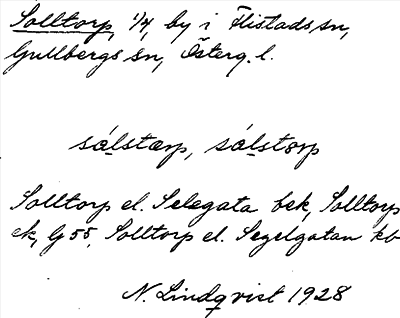 Solltorp, 1/4, by i Flistads sn,
Gullbergs hn, Österg. l.
sálstærp, sálstørp
Solltorp el. Selegata bek, Solltorp
ek, G 55, Solltorp el. Segelgatan kb
N. Lindqvist 1928